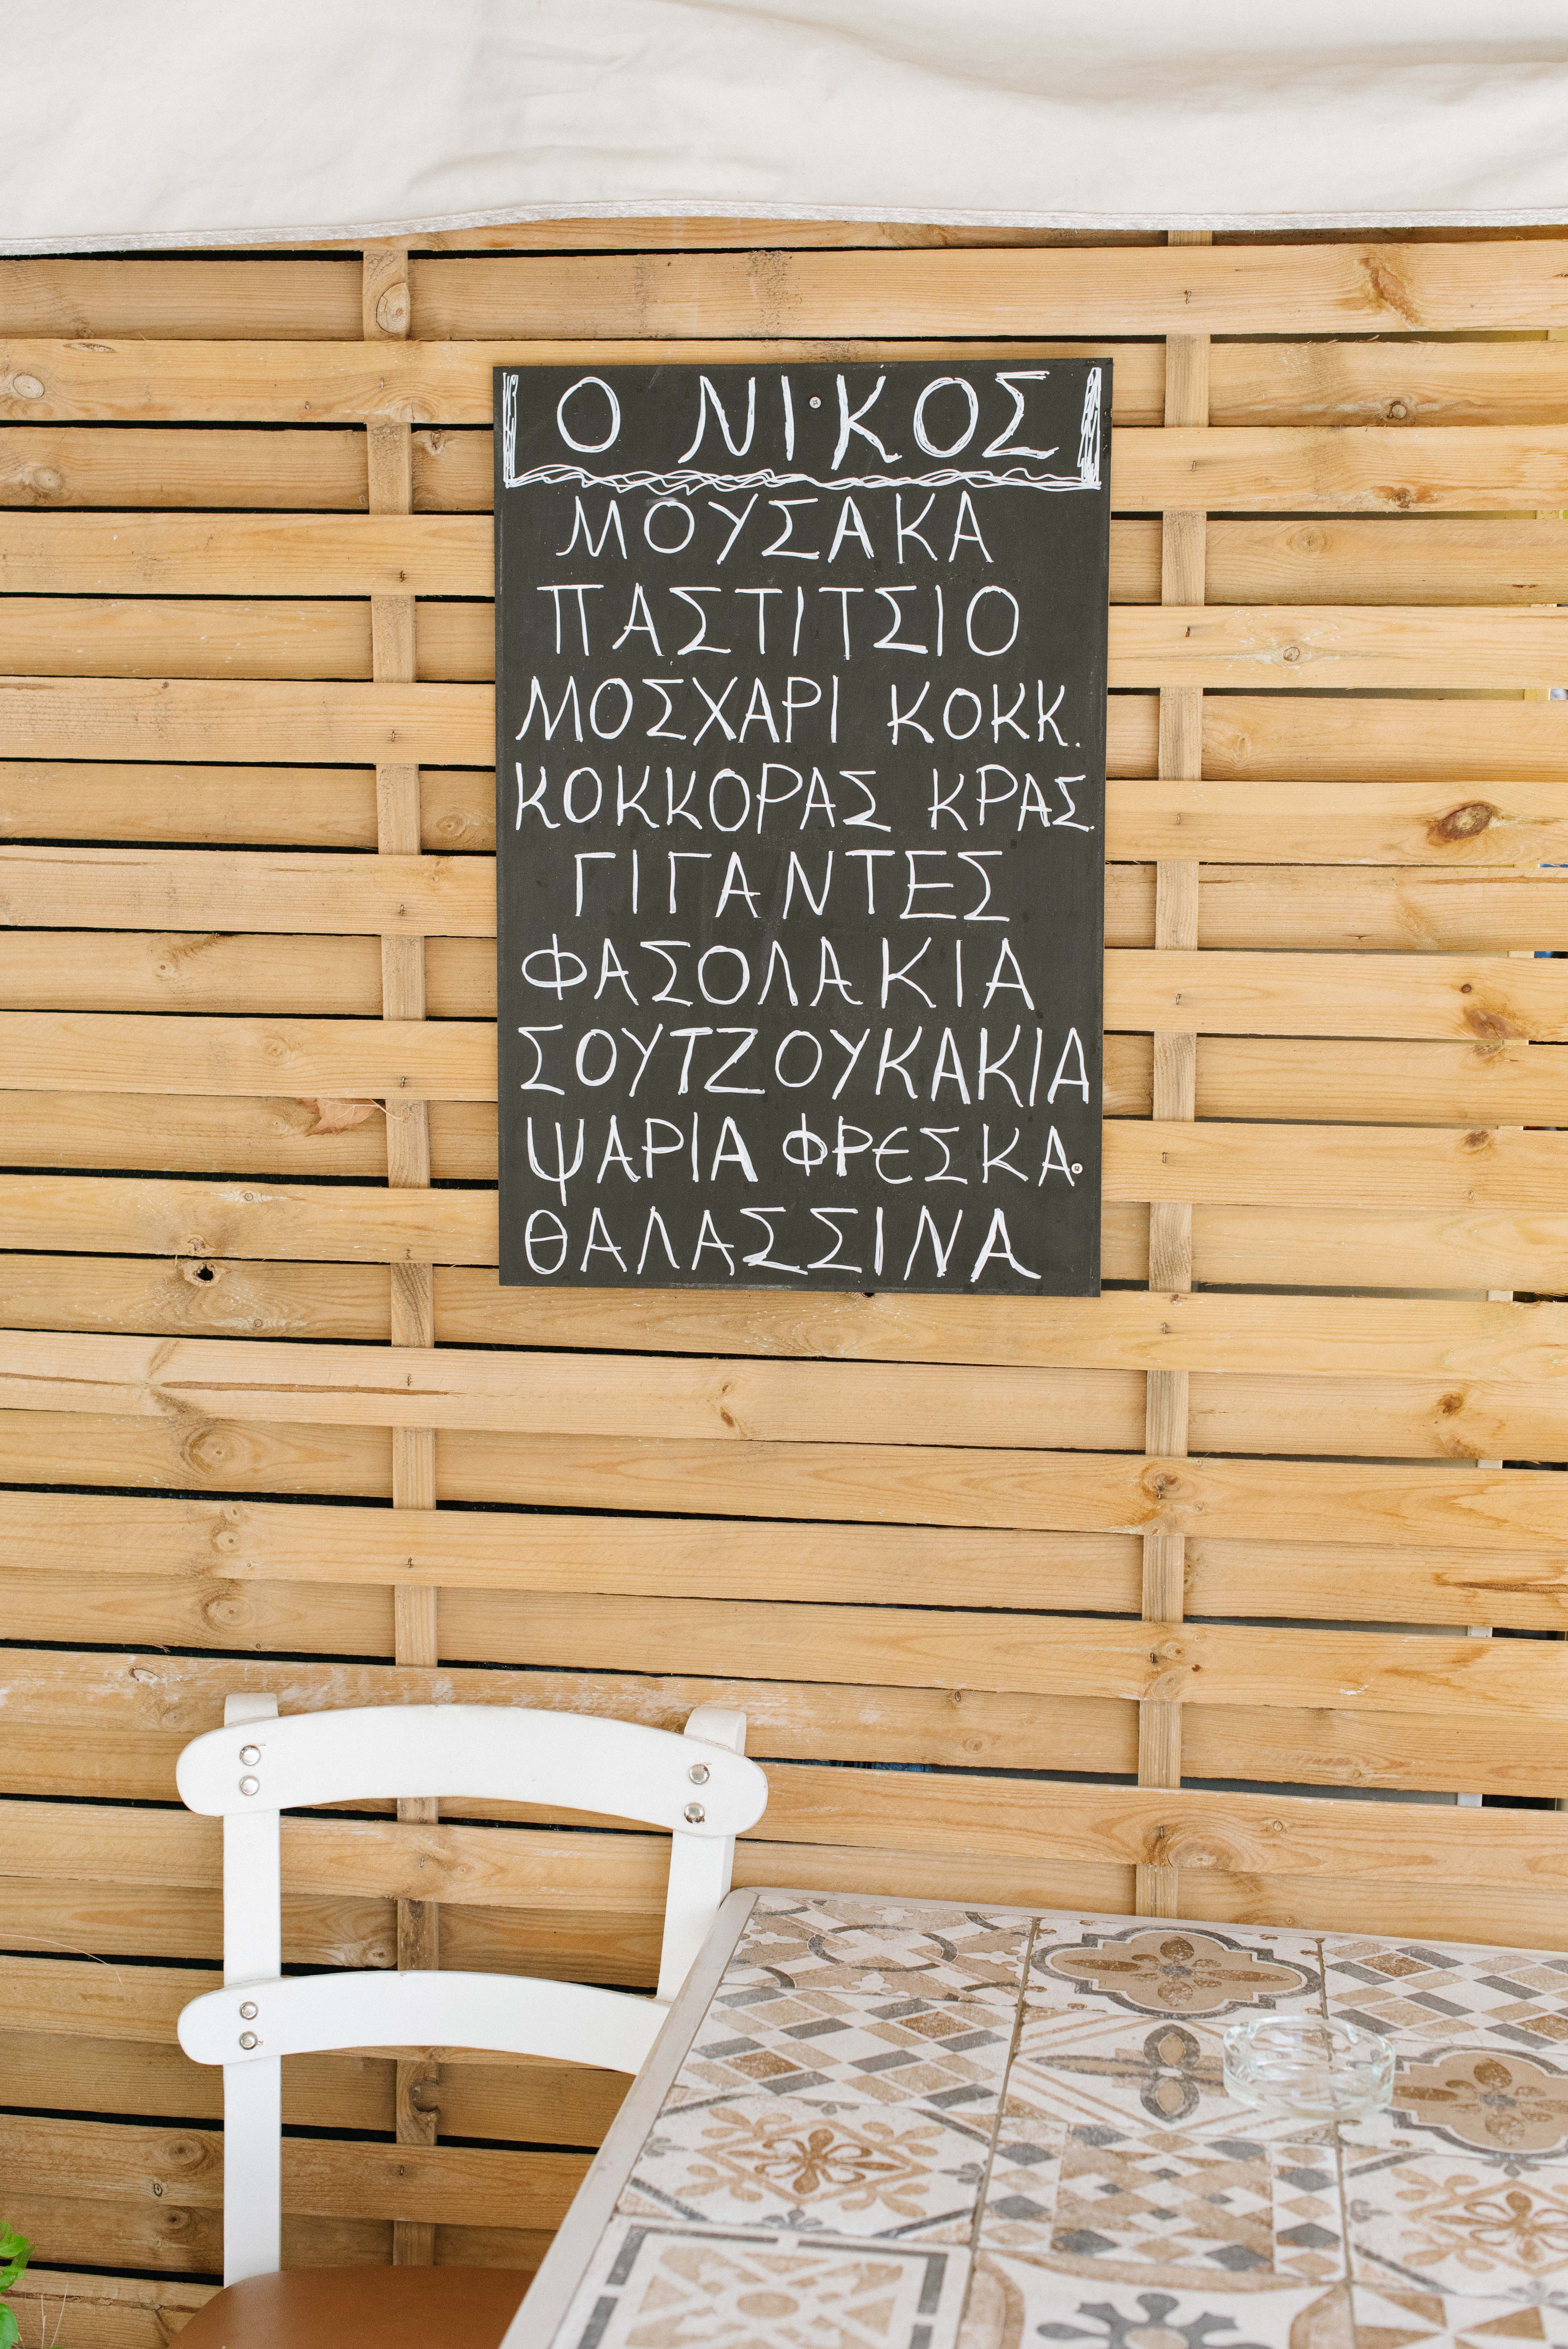 Ο ΝΙΚΟΣ
ΜΟΥΣΑΚΑ
ΠΑΣΤΙΤΣΙΟ
ΜΟΣΧΑΡΙ ΚΟΚΚ.
ΚΟΚΚΟΡΑΣ ΚΡΑΣ.
ΓΙΓΑΝΤΕΣ
ΦΑΣΟΛΑΚΙΑ
ΣΟΥΤΖΟΥΚΑΚΙΑ
ΨΑΡΙΑ ΦΡΕΣΚΑ
ΘΑΛΑΣΣΙΝΑ